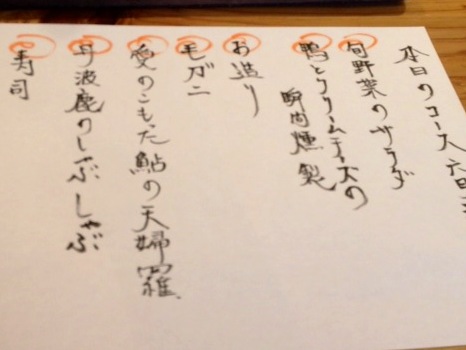 本日のコース 六日
旬野菜のサラダ
鴨とクリームチーズの
瞬間燻製
お造り
毛ガニ
愛のこもった鮎の天婦羅
丹波鹿のしゃぶしゃぶ
寿司